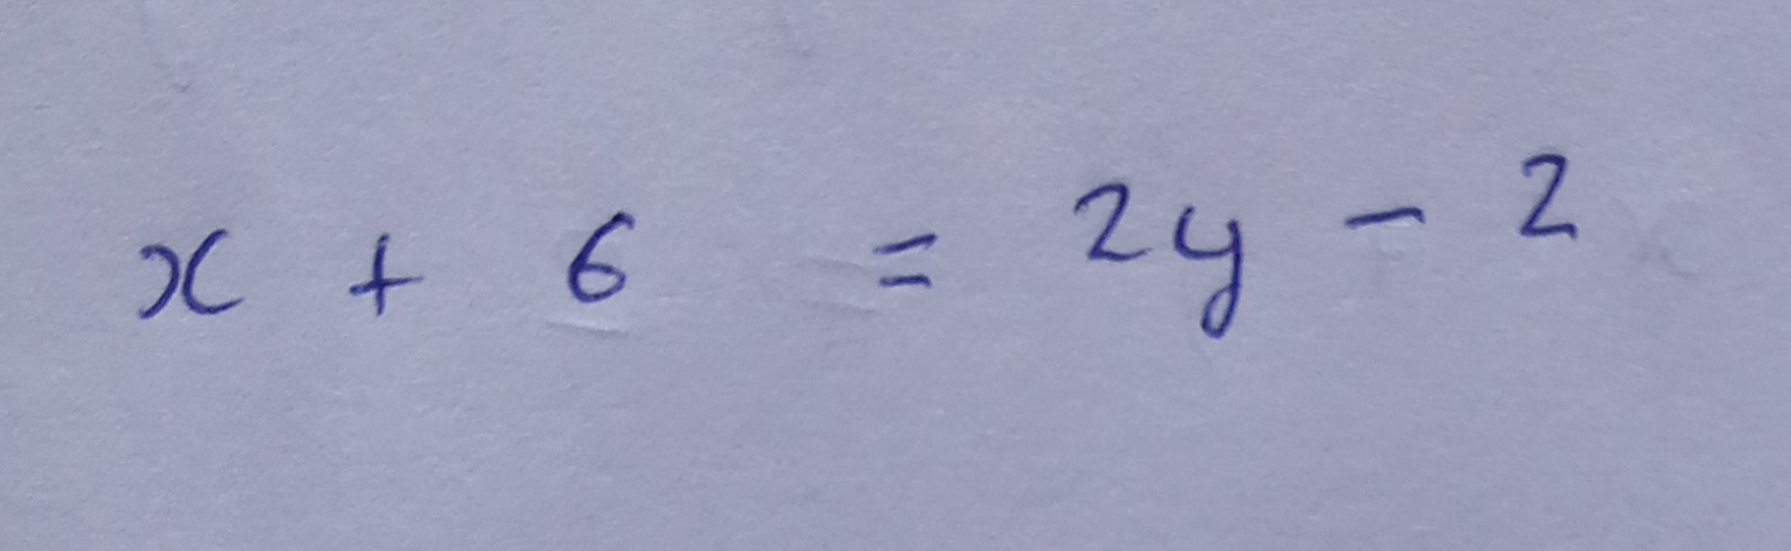 x + 6 = 2y - 2